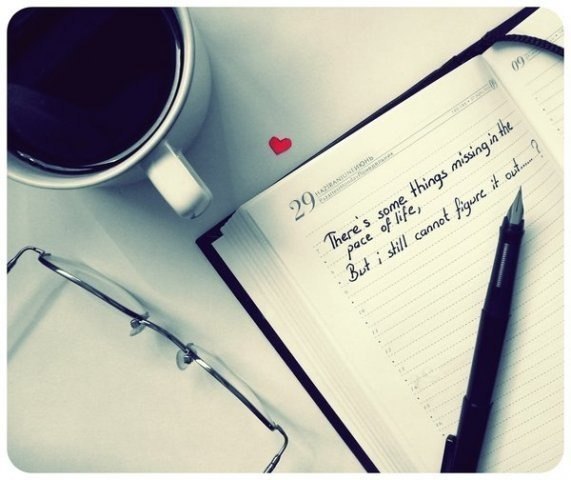 29
HAZİRAN/JUNE/ИЮНЬ
There's some things missing in the
pace of life,
But i still cannot figure it out.....?
09